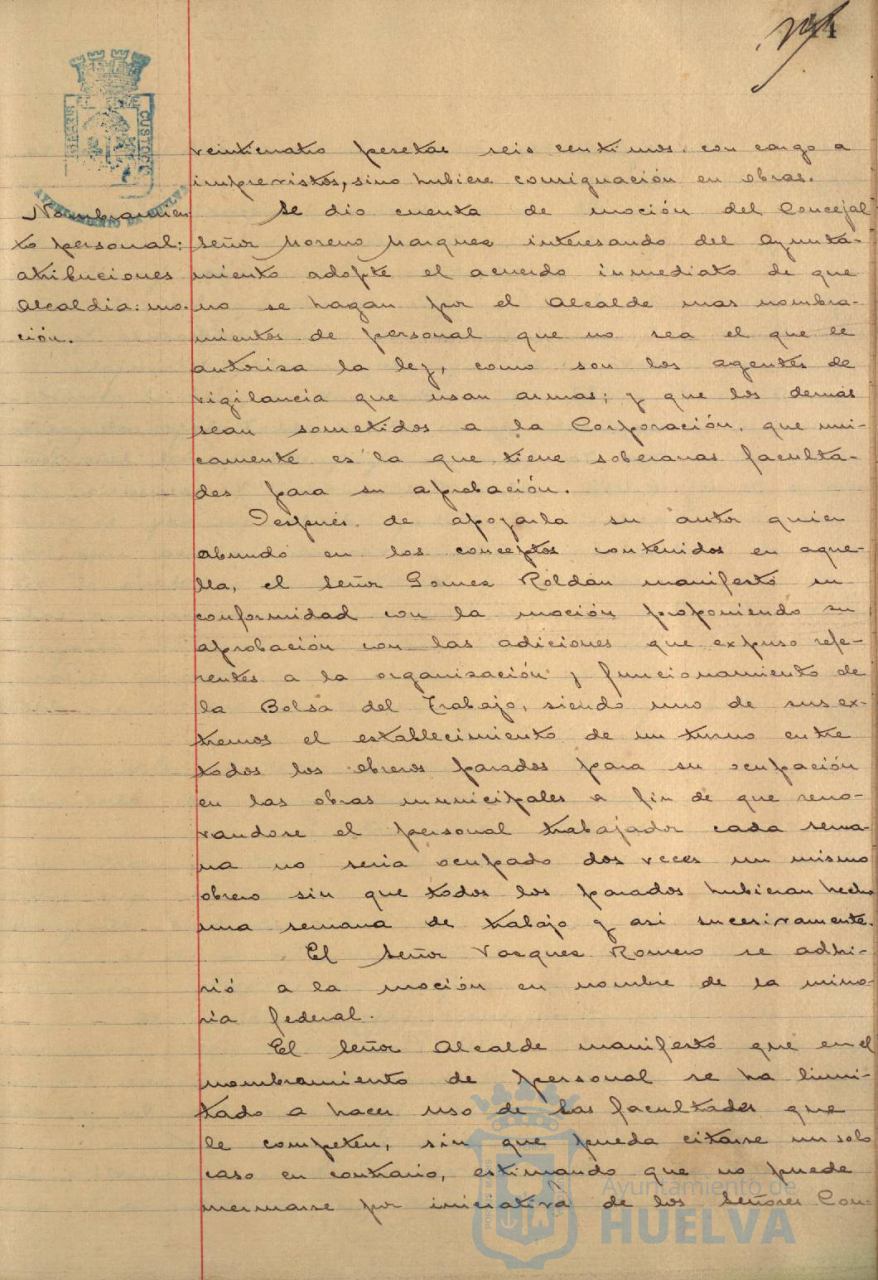 44
veinticuatro pesetas seis centimos con cargo a
imprevistos, sino hubiere consignación en obras.
Nombramien
to personal:
atribuciones
Alcaldia: mo-
ción.
Se dio cuenta de moción del Concejal
Señor Moreno Marquez interesando del Ayunta-
miento adopte el acuerdo inmediato de que
no se hagan por el Alcalde mas nombra-
mientos de personal que no sea el que le
autoriza la ley, como son los agentes de
vigilancia que usan armas; y que los demás
sean sometidos a la Corporación, que uni-
camente es la que tiene soberanas faculta-
des para su aprobación.
Después de apoyarla su autor quien
abundó en los conceptos contenidos en aque-
lla, el Señor Gomez Roldán manifestó su
conformidad con la moción proponiendo su
aprobación con las adiciones que expuso refe-
rentes a la organización y funcionamiento de
la Bolsa del Trabajo, siendo uno de sus ex-
tremos el establecimiento de un turno entre
todos los obreros parados para su ocupación
en las obras municipales a fin de que reno-
vandose el personal trabajador cada sema-
na no seria ocupado dos veces un mismo
obrero sin que todos los parados hubieran hecho
una semana de trabajo y asi sucesivamente.
El Señor Vazquez Romero se adhi-
rió a la moción en nombre de la mino-
ria federal.
El Señor Alcalde manifestó que en el
nombramiento de personal se ha limi-
tado a hacer uso de las facultades que
le competen, sin que pueda citarse un solo
caso en contrario, estimando que no puede
mermarse por iniciativa de los Señores Con-
Ayuntamiento de
HUELVA